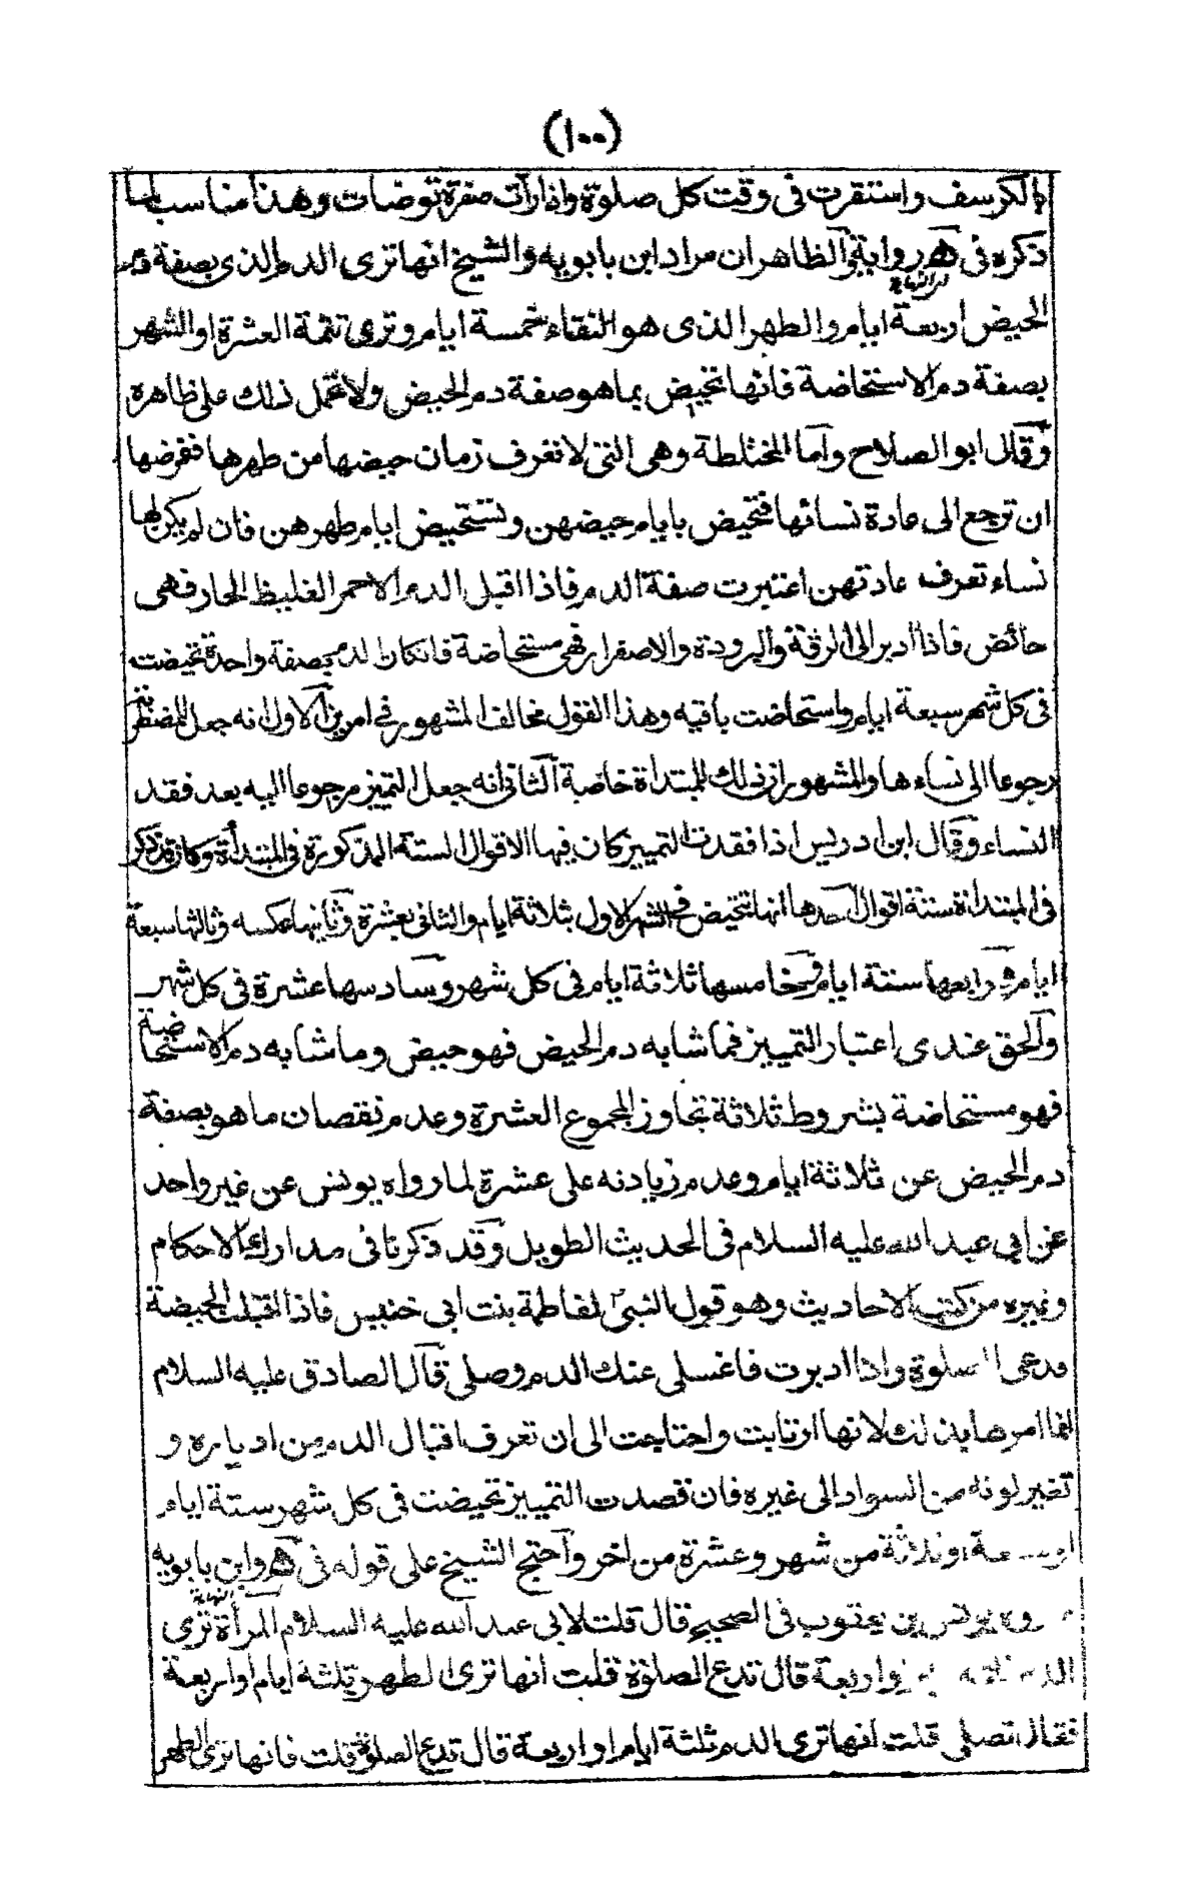 (١٠٠)
بالكرسف واستقرت فى وقت كل صلوة واذا رأت صفرة توضات وهذا مناسب لما
ذكره فى رواية والظاهر ان مراد ابن بابويه والشيخ انها ترى الدم الذى بصفة دم
الحيض اربعة ايام والطهر الذى هو النقاء خمسة ايام وترى تتمة العشرة او الشهر
بصفة دم الاستحاضة فانها تتحيض بما هو صفة دم الحيض ولا تحمل ذلك على ظاهره
وقال ابو الصلاح واما المختلطة وهى التى لا تعرف زمان حيضها من طهرها ففرضها
ان ترجع الى عادة نسائها فتحيض بايام حيضهن وتستحيض ايام طهرهن فان لم يكن لها
نساء تعرف عادتهن اعتبرت صفة الدم فاذا اقبل الدم الاحمر الغليظ الحار فهى
حائض فاذا ادبر الى الرقة والبرودة والاصفرار فهى مستحاضة فانكان الدم بصفة واحدة تحيضت
فى كل شهر سبعة ايام واستحاضت باقيه وهذا القول مخالف المشهور فى امرين الاول انه جعل للمضطربة
رجوعا الى نساءها والمشهور ان ذلك للمبتداة خاصة الثانى انه جعل التميز مرجوعا اليه بعد فقد
النساء وقال ابن ادريس اذا فقدت التمييز كان فيها الاقوال الستة المذكورة فى المبتدأة وكان قد ذكر
فى المبتداة ستة اقوال احدها انها تتحيض فى الشهر الاول بثلاثة ايام والثانى بعشرة وثانيها عكسه وثالثها سبعة
ايام ورابعها ستة ايام وخامسها ثلاثة ايام فى كل شهر وسادسها عشرة فى كل شهر
والحق عندى اعتبار التمييز فما شابه دم الحيض فهو حيض وما شابه دم الاستحاضة
فهو مستحاضة بشروط ثلاثة تجاوز المجموع العشرة وعدم نقصان ما هو بصفة
دم الحيض عن ثلاثة ايام وعدم زيادته على عشرة لما رواه يونس عن غير واحد
عن ابى عبد الله عليه السلام فى الحديث الطويل وقد ذكرنا فى مدارك الاحكام
وغيره من كتب الاحاديث وهو قول النبى لفاطمة بنت ابى خنيس فاذا اقبلت الحيضة
فدعى الصلوة واذا ادبرت فاغسلى عنك الدم وصلى قال الصادق عليه السلام
انما امرها بذلك لانها ارتابت واحتاجت الى ان تعرف اقبال الدم من ادباره و
تغير لونه من السواد الى غيره فان فقدت التمييز تحيضت فى كل شهر ستة ايام
او سبعة او ثلاثة من شهر وعشرة من اخر واحتج الشيخ على قوله فى وابن بابويه
يونس بن يعقوب فى الصحيح قال قلت لابى عبد الله عليه السلام المرأة ترى
الدم واربعة قال تدع الصلوة قلت انها ترى الطهر ثلثة ايام او اربعة
فقال تصلى قلت انها ترى الدم ثلثة ايام او اربعة قال تدع الصلوة قلت فانها ترى الطهر